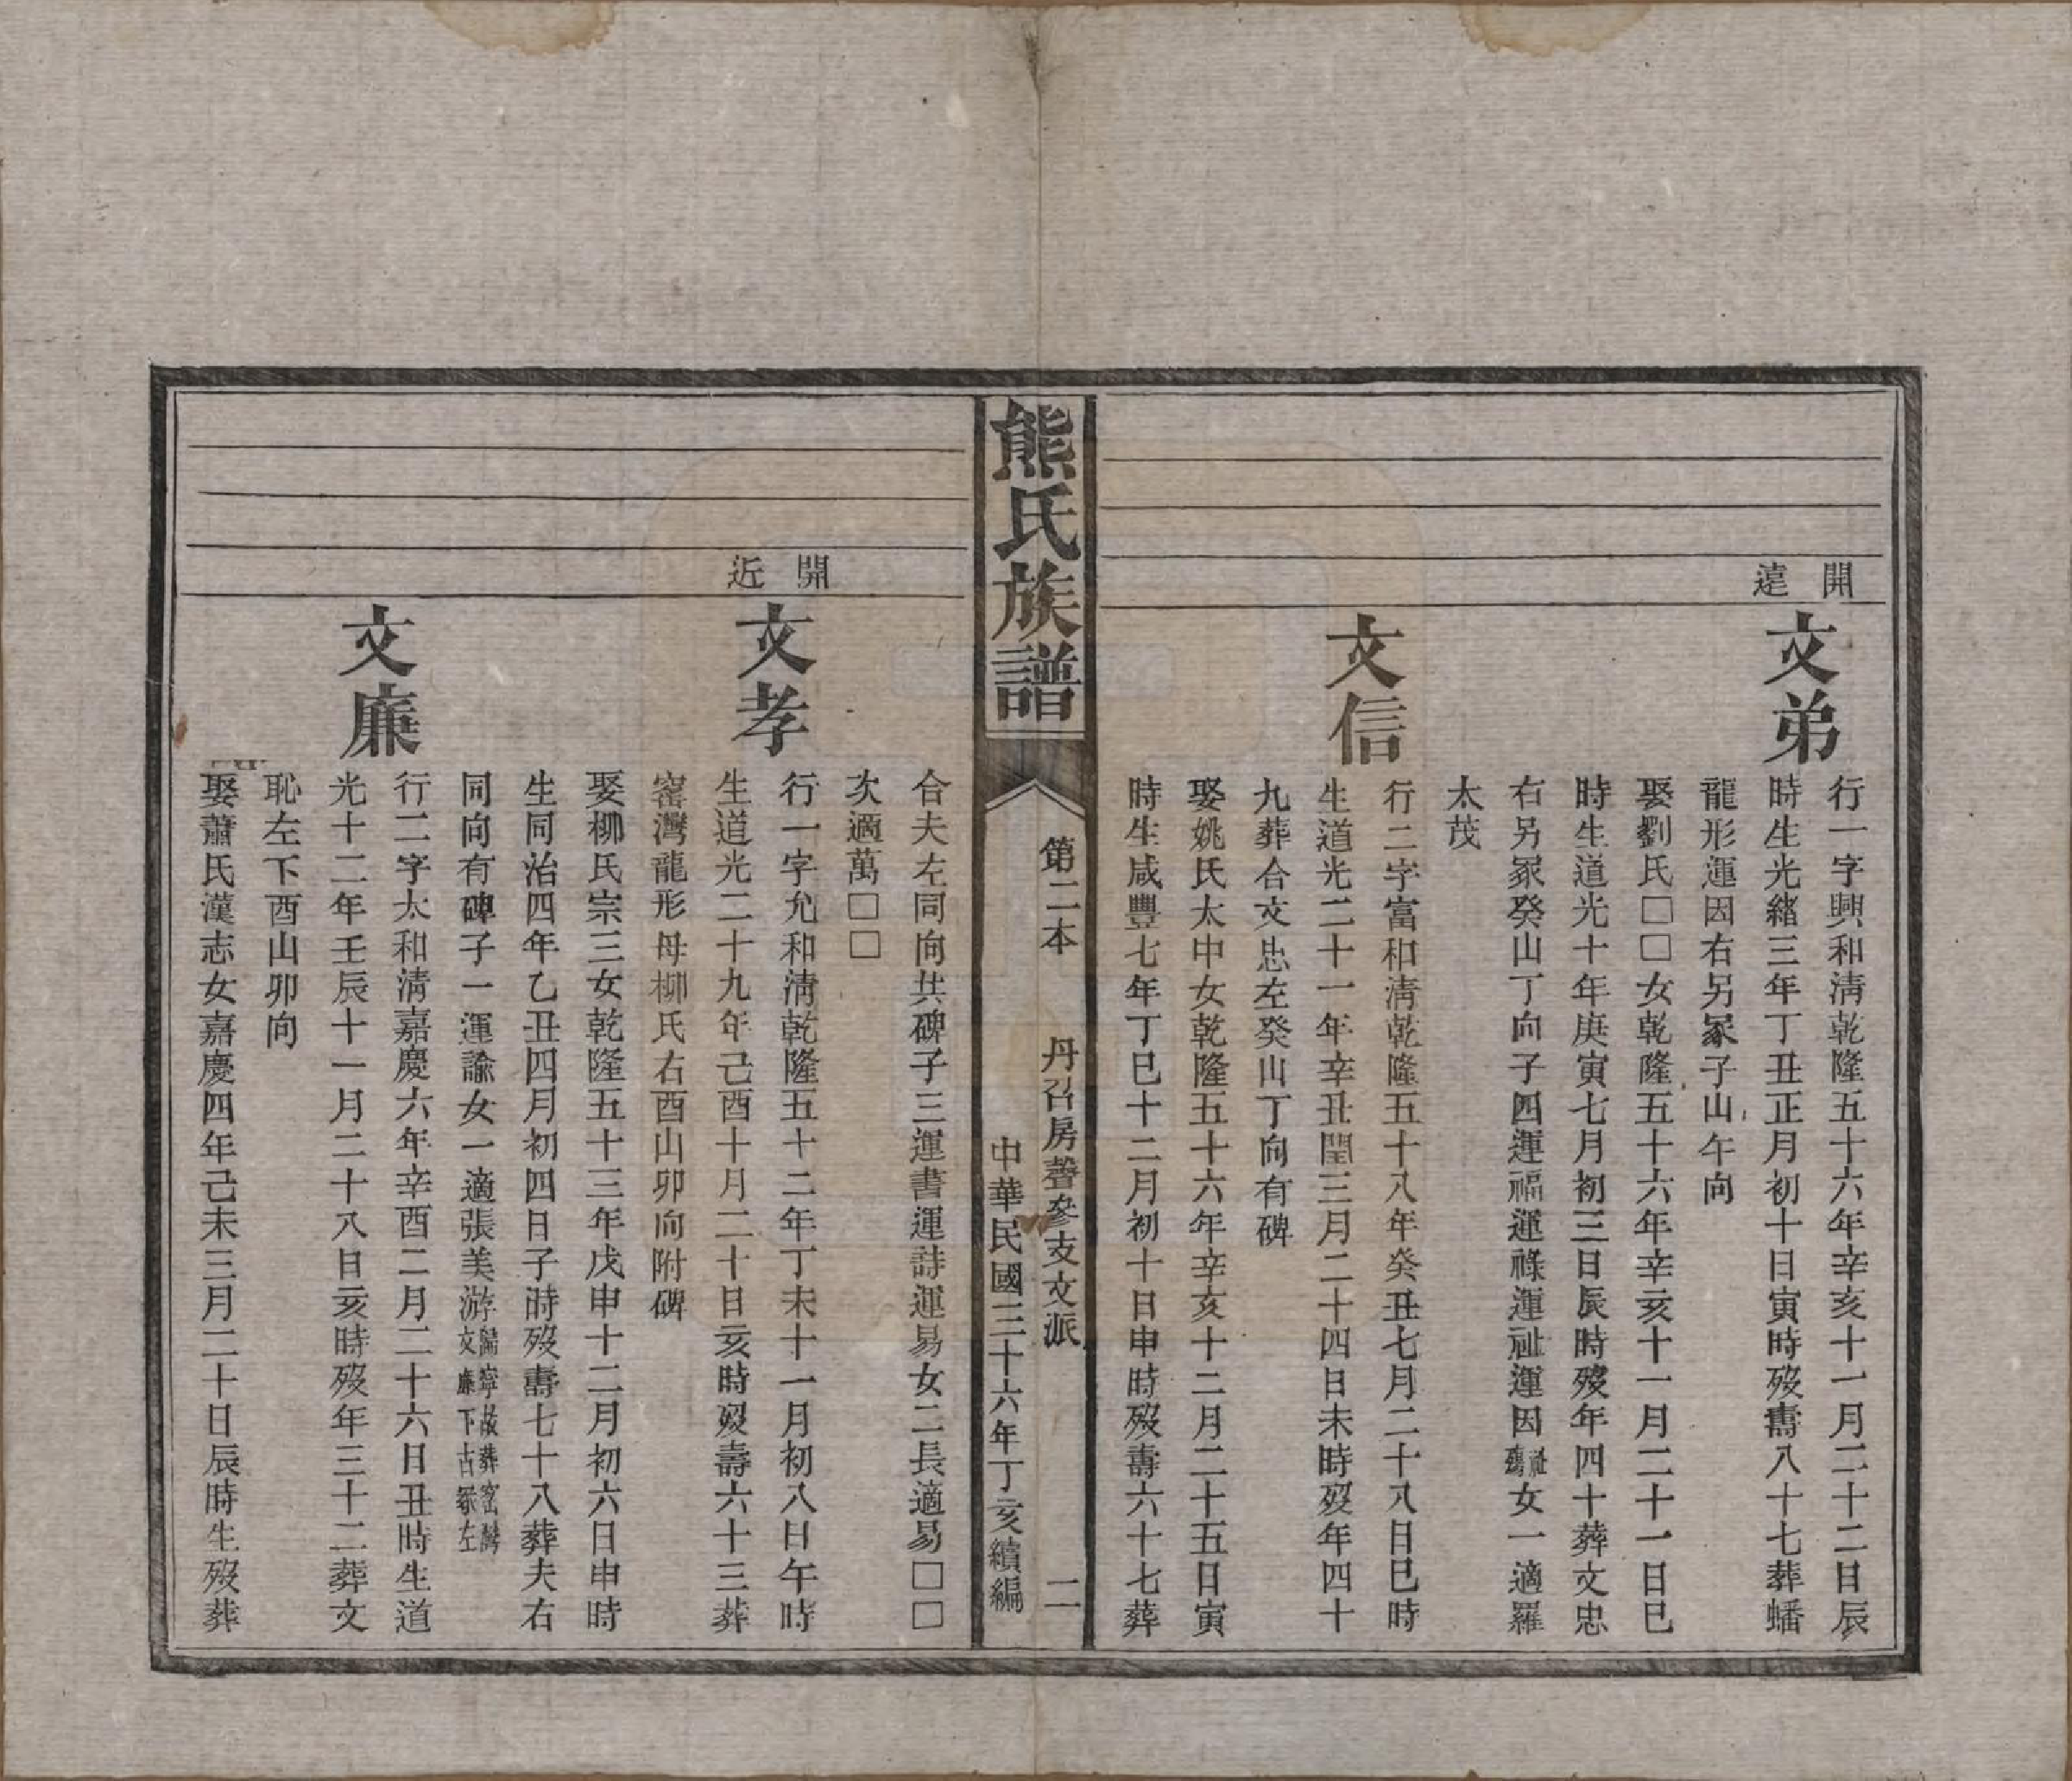 開遠
文弟
行一字興和淸乾隆五十六年辛亥十一月二十二日辰
時生光緒三年丁丑正月初十日寅時歿壽八十七葬蟠
龍形運因右另冢子山午向
娶劉氏□□女乾隆五十六年辛亥十一月二十一日巳
時生道光十年庚寅七月初三日辰時歿年四十葬文忠
右另冢癸山丁向子四運福運祿運祉運因祉殤女一適羅
太茂
文信
行二字富和淸乾隆五十八年癸丑七月二十八日巳時
生道光二十一年辛丑閏三月二十四日未時歿年四十
九葬合文忠左癸山丁向有碑
娶姚氏太中女乾隆五十六年辛亥十二月二十五日寅
時生咸豐七年丁巳十二月初十日申時歿壽六十七葬
熊氏族譜
第二本 丹召房馨參支文派 二
中華民國三十六年丁亥續編
合夫左同向共碑子三運書運詩運易女二長適易□□
次適萬□□
開近
文孝
行一字允和淸乾隆五十二年丁未十一月初八日午時
生道光二十九年己酉十月二十日亥時歿壽六十三葬
窰灣龍形母柳氏右酉山卯向附碑
娶柳氏宗三女乾隆五十三年戊申十二月初六日申時
生同治四年乙丑四月初四日子時歿壽七十八葬夫右
同向有碑子一運諭女一適張美游歸寧故葬窰灣文廉下古冢左
文廉
行二字太和淸嘉慶六年辛酉二月二十六日丑時生道
光十二年壬辰十一月二十八日亥時歿年三十二葬文
恥左下酉山卯向
娶蕭氏漢志女嘉慶四年己未三月二十日辰時生歿葬